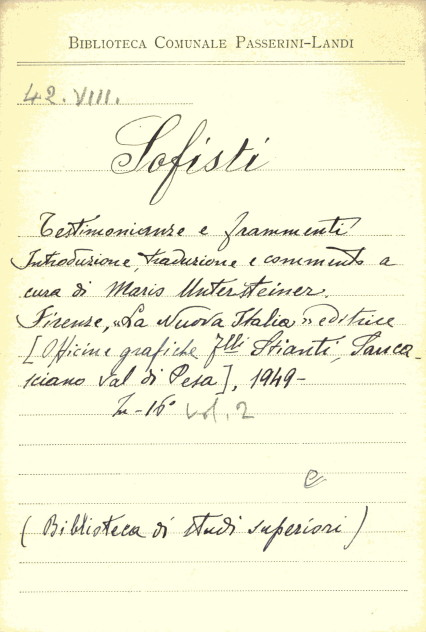 BIBLIOTECA COMUNALE PASSERINI-LANDI
42. VIII.
Sofisti
Testimonianze e frammenti
Introduzione, traduzione e commento a
cura di Mario Untersteiner.
Firenze, "La Nuova Italia" editrice
[Officine grafiche f.lli Stianti, Sanca-
sciano Val di Pesa], 1949-
In-16° vol. 2
e
(Biblioteca di studi superiori)